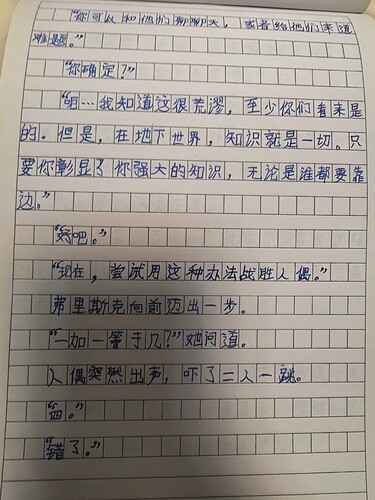 “你可以和他们聊聊天，或者给他们来道
难题。”
“你确定？”
“呃…我知道这很荒谬，至少你们看来是
的。但是，在地下世界，知识就是一切。只
要你彰显了你强大的知识，无论是谁都要靠
边。”
“好吧。”
“现在，尝试用这种办法战胜人偶。”
弗里斯克向前迈出一步。
“一加一等于几？”她问道。
人偶突然出声，吓了二人一跳。
“四。”
“错了。”